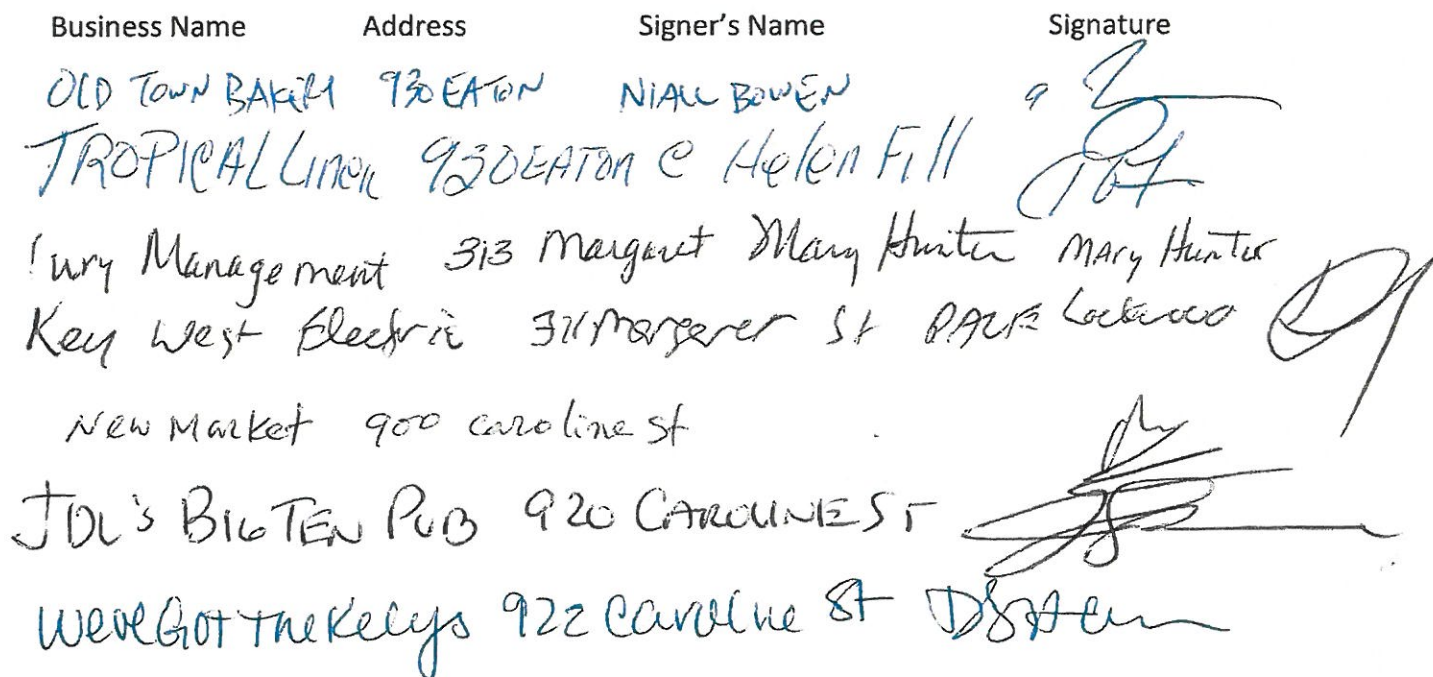 Business Name Address Signer's Name Signature
OLD TOWN BAKERY 930 EATON NIALL BOWEN
TROPICAL Linen 930 EATON @ Helen Fill
Management 313 Margaret Mary Hunter Mary Hunter
Key West Electric 311 Margaret St
New Market 900 caroline st
JDL's BIG TEN PUB 920 CAROLINE ST
WeveGotTheKeys 922 Caroline St